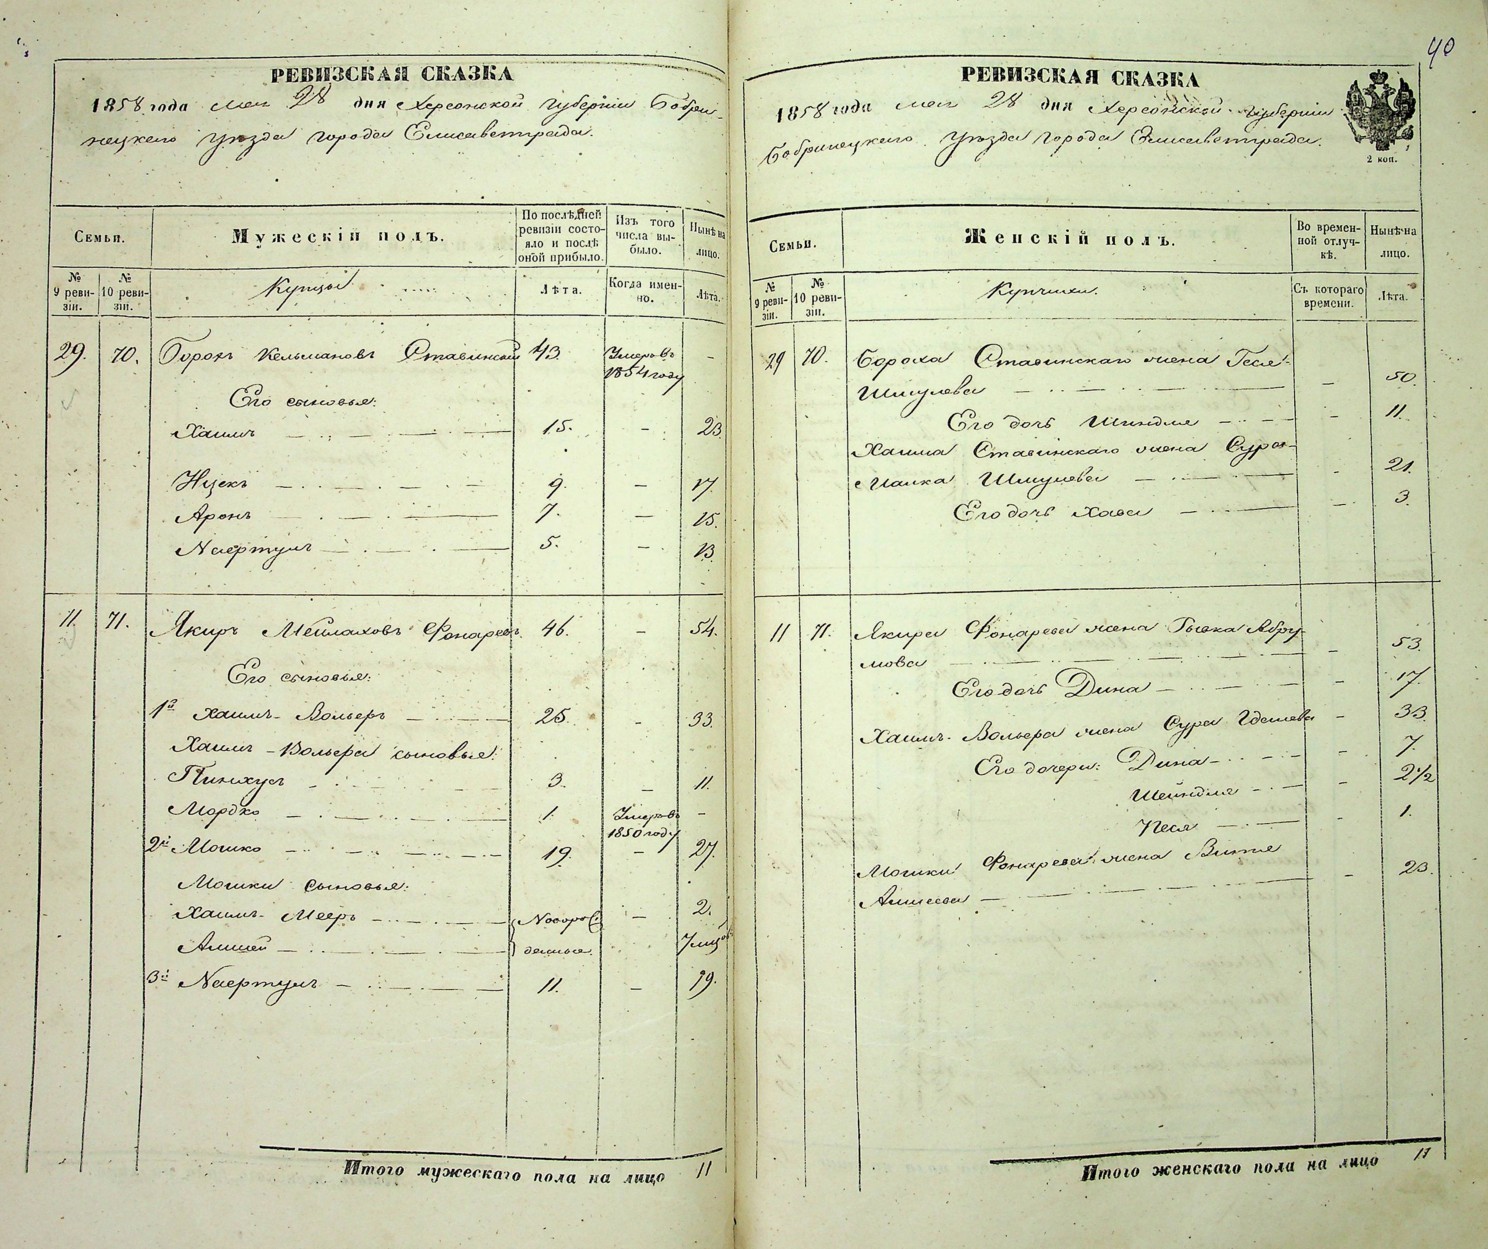 40
РЕВИЗСКАЯ СКАЗКА
1858 года мая 28 дня Херсонской губерніи Бобри-
нецкаго уѣзда города Елисаветграда.
Семьи.
Мужескій полъ.
По послѣдней ревизіи состо-
яло и послѣ оной прибыло.
Изъ того числа вы-
было.
Нынѣ на лицо.
№ 9 реви-
зіи.
№ 10 реви-
зіи.
Купцы
Лѣта.
Когда имен-
но.
Лѣта.
29. 70. Борохъ Кельмановъ Ставинскій 43. Умеръ въ –
1854 году
Его сыновья:
Хаимъ 15. – 23.
Ицекъ 9. – 17.
Аронъ 7. – 15.
Нафтулъ 5. – 13.
11. 71. Якиръ Мейлаховъ Фонаревъ. 46. – 54.
Его сыновья:
1й Хаимъ-Вольфъ 25. – 33.
Хаимъ-Вольфа сыновья:
Пинхусъ 3. – 11.
Мордко 1. Умеръ въ –
1850 году
2й Мошко 19. – 27.
Мошки сыновья:
Хаимъ-Мееръ Новорож – 2.
денные. 7 мѣсяц
3й Нафтулъ 11. – 19.
Итого мужескаго пола на лицо 11
РЕВИЗСКАЯ СКАЗКА
1858 года мая 28 дня Херсонской губерніи
Бобринецкаго уѣзда города Елисаветграда.
2 коп.
Семьи.
Женскій полъ.
Во времен-
ной отлуч-
кѣ.
Нынѣ на лицо.
№ 9 реви-
зіи.
№ 10 реви-
зіи.
Купчихи.
Съ котораго времени.
Лѣта.
29 70. Бороха Ставинскаго жена Геся
Шмулева – 50.
Его дочь Шиндля – 11.
Хаима Ставинскаго жена Сура-
Малка Шмулева – 21.
Его дочь Хава – 3.
11 71. Якира Фонарева жена Абру-
мова – 53.
Его дочь Дина – 17.
Хаимъ-Вольфа жена Сура – 33.
Его дочери: Дина – 7.
Шейндля – 2 1/2
Песя – 1.
Мошки Фонарева жена
– 23.
Итого женскаго пола на лицо 11